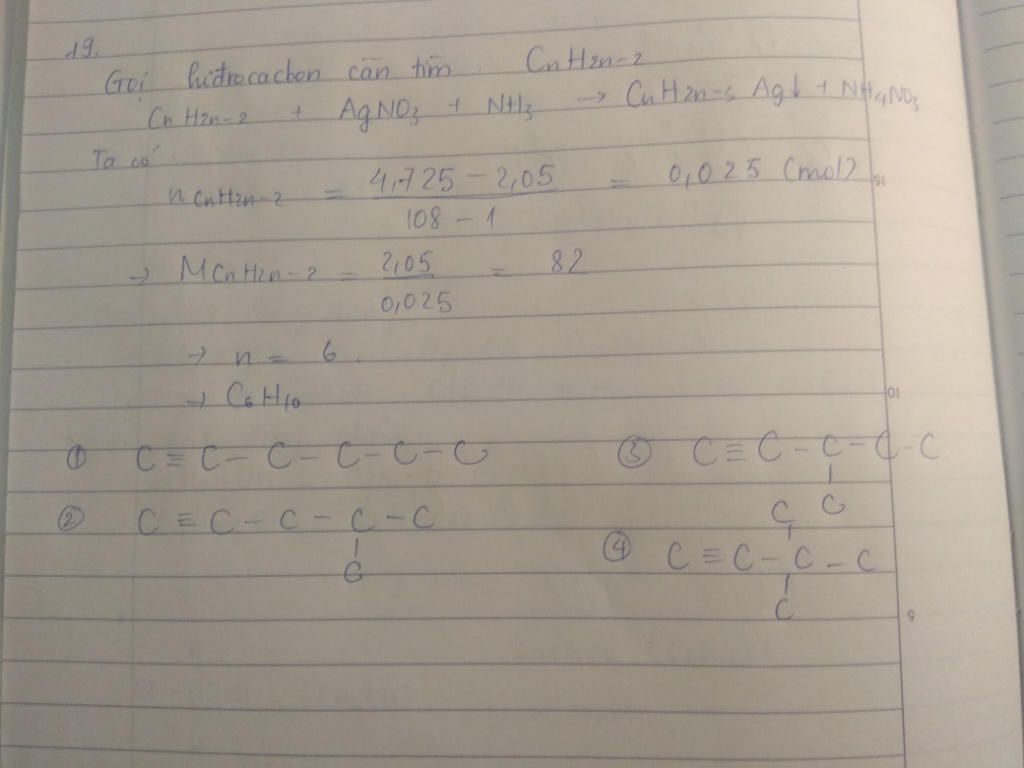 19.
Gọi hiđrocacbon cần tìm. CnH2n-2
CnH2n-2 + AgNO3 + NH3 → CnH2n-3 Ag↓ + NH4NO3
Ta có
nCnH2n-2 = (4,725 - 2,05)/(108 - 1) = 0,025 (mol)
→ MCnH2n-2 = 2,05/0,025 = 82
→ n = 6.
→ C6H10
① C ≡ C - C - C - C - C
③ C ≡ C - C - C - C
C
② C ≡ C - C - C - C
C
C
④ C ≡ C - C - C
C
15
10
5